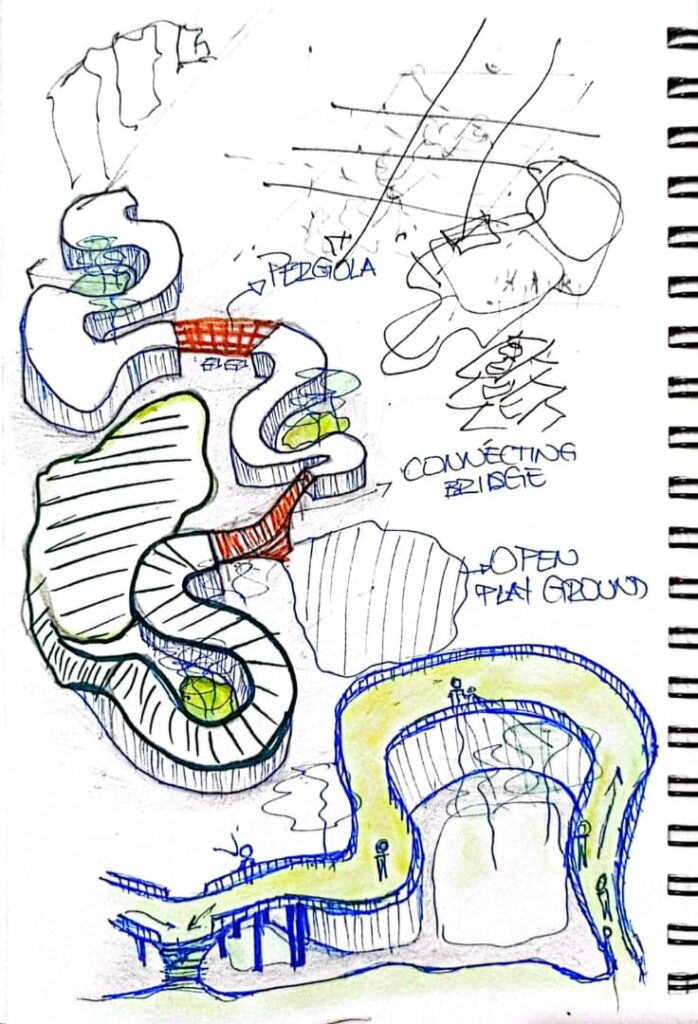 PERGOLA
CONNECTING
BRIDGE
OPEN
PLAY GROUND